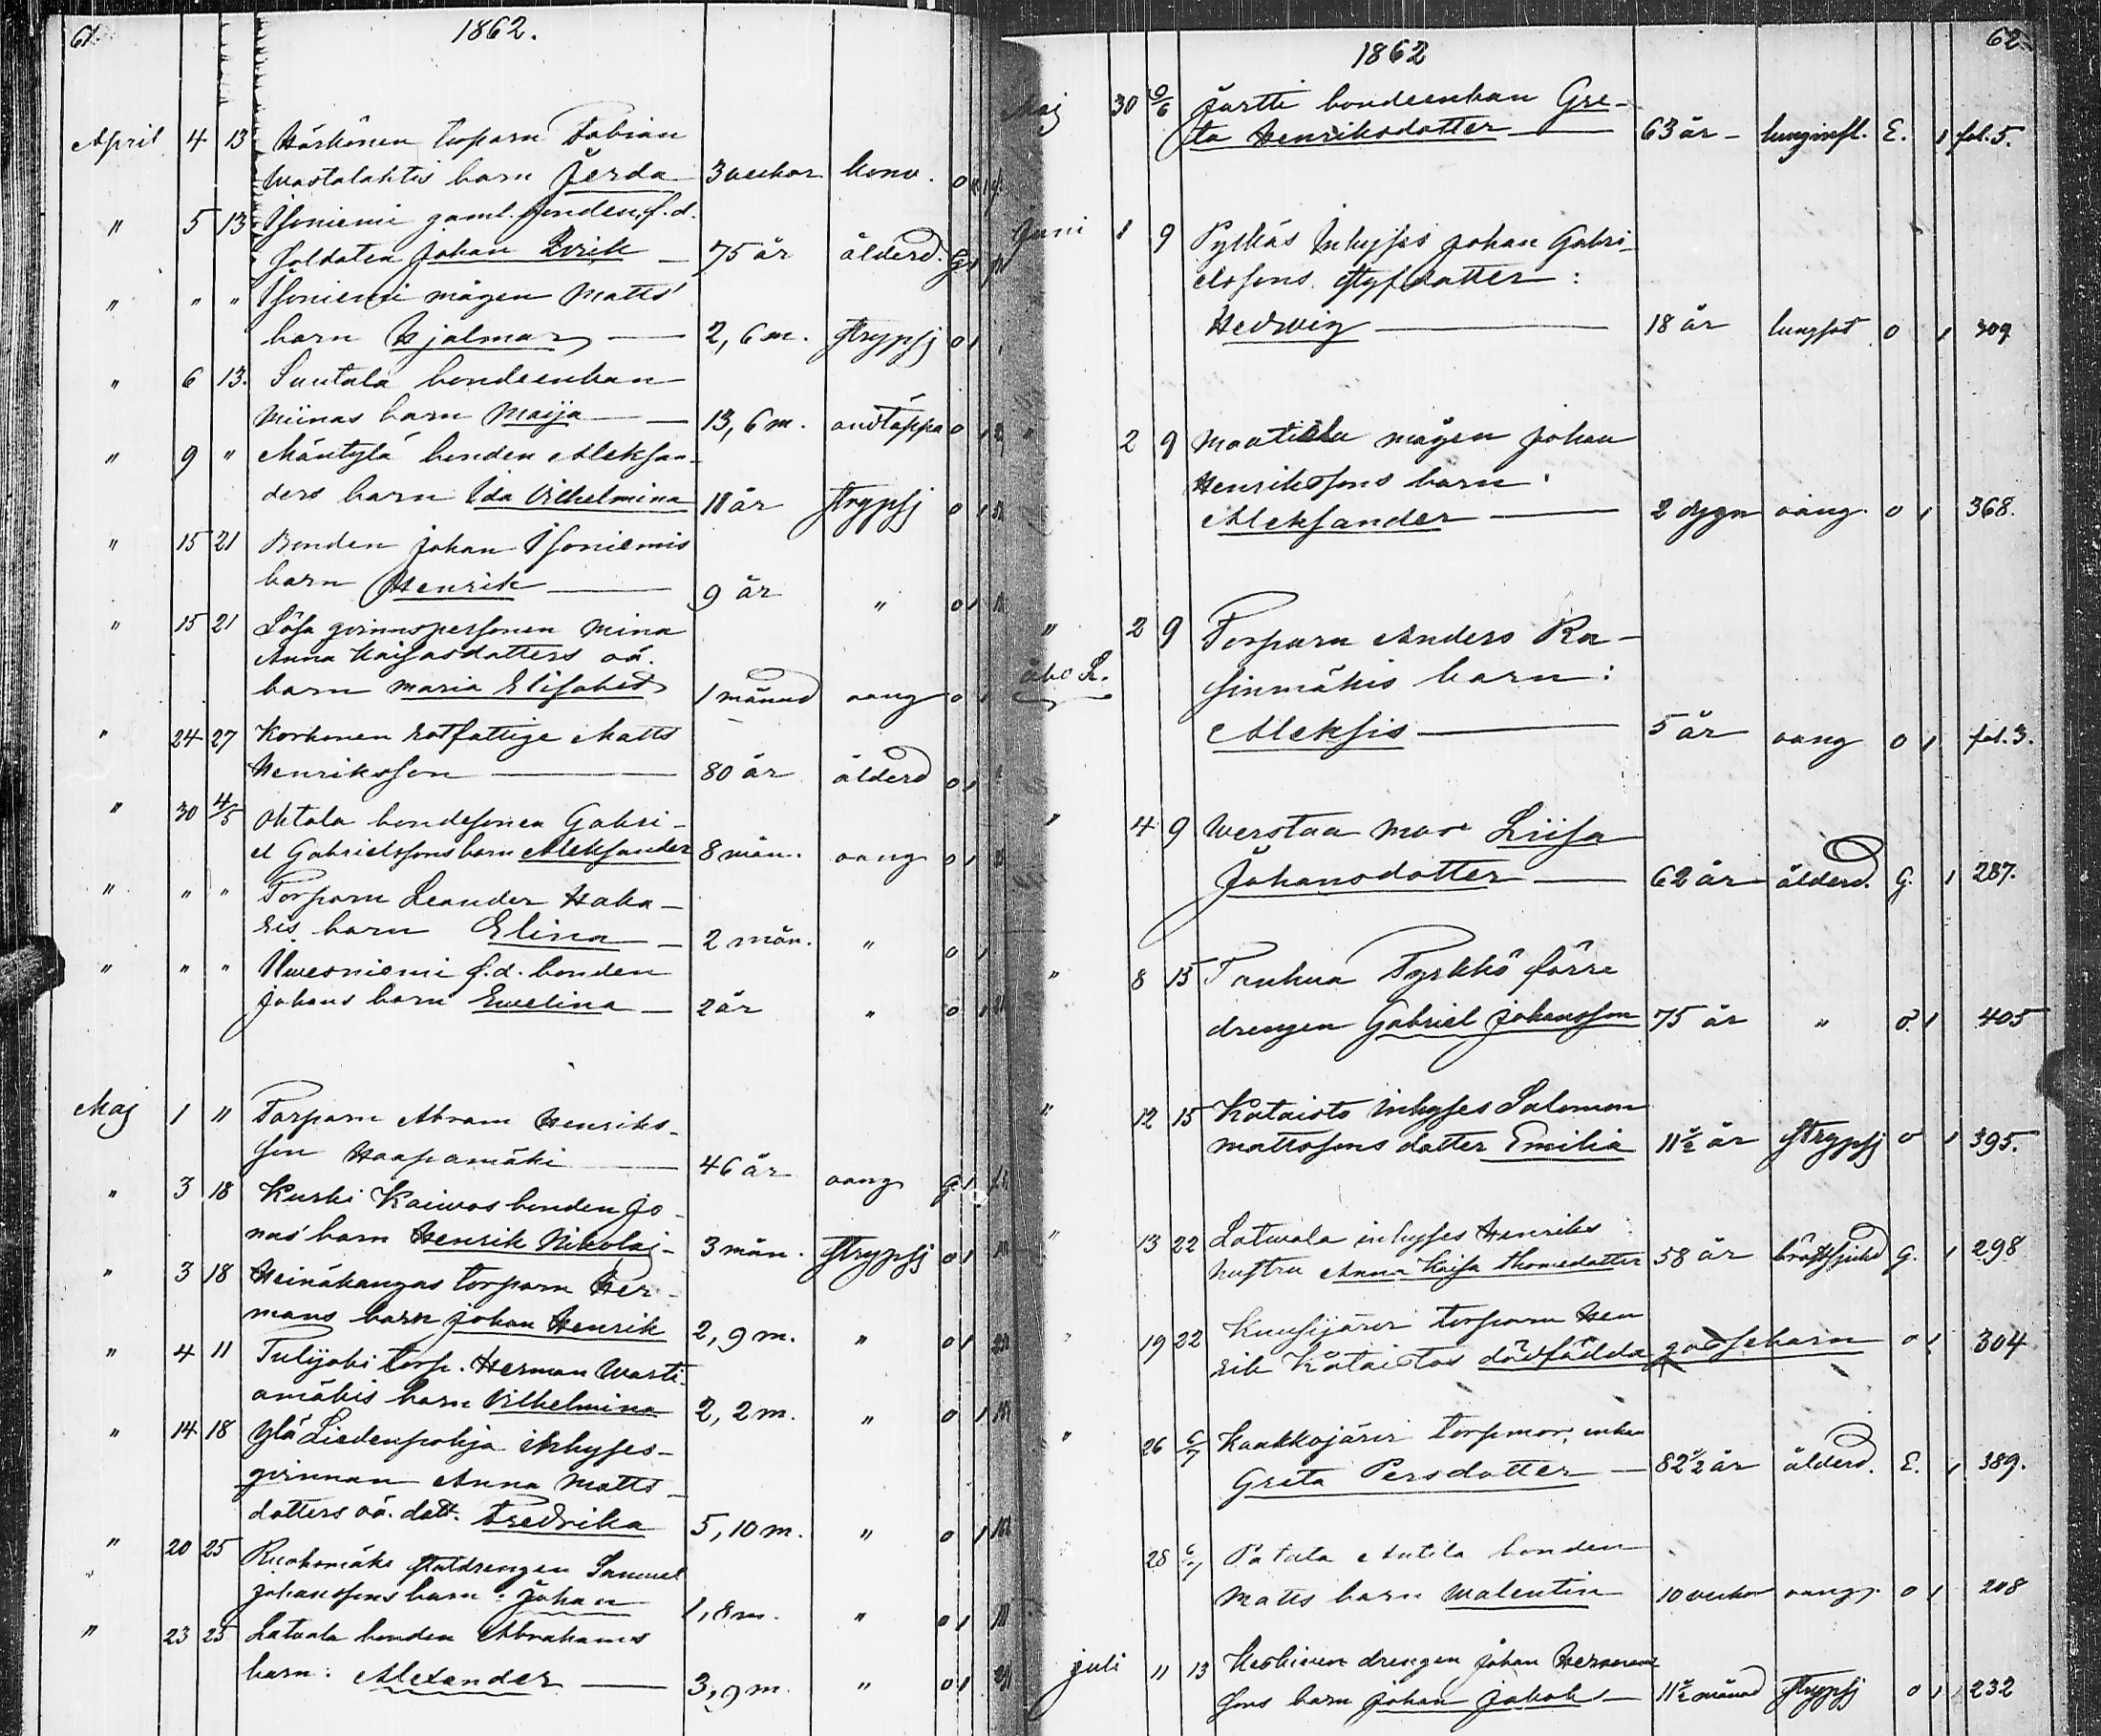 61.
1862.
April 4 13 Härkönen torparn Fabian
Wastalahtis barn Jerda 3 veckor konv. o
" 5 13 Isoniemi gaml. bonden, f.d.
soldaten Johan Qvick 75 år ålderd. G 1
" " " Isoniemi mågen Matts'
barn Hjalmar 2, 6 m. strypsj o 1
" 6 13. Luutala bondeenkan
Miinas barn Maija 13, 6 m. andtäppa o 1
" 9 " Mäntylä bonden Aleksan-
ders barn Ida Vilhelmina 11 år strypsj o 1
" 15 21 Bonden Johan Isoniemis
barn Henrik 9 år " o 1
" 15 21 Lösa qvinnspersonen Mina
Anna Kaisasdotters oä.
barn Maria Elisabet 1 månad oang o 1
" 24 27 Korhonen rotfattige Matts
Henriksson 80 år ålderd o 1
" 30 4/5 Ohtola bondesonen Gabri-
el Gabrielssons barn Aleksander 8 mån. oang o 1
" " " Torparn Leander Haka-
ris barn Elina 2 mån. " o 1
" " " Ilwesniemi f.d. bonden
Johans barn Ewelina 2 år " o 1
Maj 1 " Torparn Abram Henriks-
son Haapamäki 46 år oang G 1
" 3 18 Kurki Kaiwos bonden Jo-
nas' barn Henrik Nikolaj 3 mån. strypsj o 1
" 3 18 Heinäkangas torparn Her-
mans barn Johan Henrik 2, 9 m. " o 1
" 4 11 Tulijoki torp. Herman Warti-
amäkis barn Vilhelmina 2, 2 m. " o 1
" 14 18 Ylä Liedenpohja inhyses-
qvinnan Anna Matts-
dotters oä. dott. Fredrika 5, 10 m. " o 1
" 20 25 Ruokomäki statdrengen Samuel
Johanssons barn: Johan 1, 8 m. " o 1
" 23 25 Latvala bonden Abrahams
barn: Alexander 3, 9 m. " o 1
62.
1862
Maj 30 9/6 Jartti bondeenkan Gre-
ta Henriksdotter 63 år lunginfl. E. 1 fol. 5.
Juni 1 9 Pylkäs Inhyses Johan Gabri-
elssons styfdotter:
Hedwig 18 år lungsot o 1 309
" 2 9 Maatiala mågen Johan
Henrikssons barn:
Aleksander 2 dygn oäng. o 1 368.
" 2 9 Torparn Anders Ra-
åbo L. sinmäkis barn:
Aleksis 5 år oang o 1 fol. 3.
" 4 9 Werstaa mor Liisa
Johansdotter 62 år ålderd. G. 1 287.
" 8 15 Tanhua Tyrkkö förre
drengen Gabriel Johansson 75 år " o. 1 405
" 12 15 Kataisto inhyses Salomon
Mattssons dotter Emilia 11½ år strypsj o 1 395.
" 13 22 Latwala inhyses Henriks
hustru Anna Kaisa Thomedotter 58 år bröstsjukd G. 1 298
" 19 22 Kuusijärvi torparn Hen
rik Kataistos dödfödda gossebarn o 1 304
" 26 6/7 Kaakkojärvi torpmor, enkan
Greta Persdotter 82½ år ålderd. E. 1 389.
28 6/7 Patala Antila bonden
Matts barn Walentin 10 veckor oang. o 1 208
Juli 11 13 Keskinen drengen Johan Hermans
sons barn Johan Jakob 11½ månad strypsj o 1 232